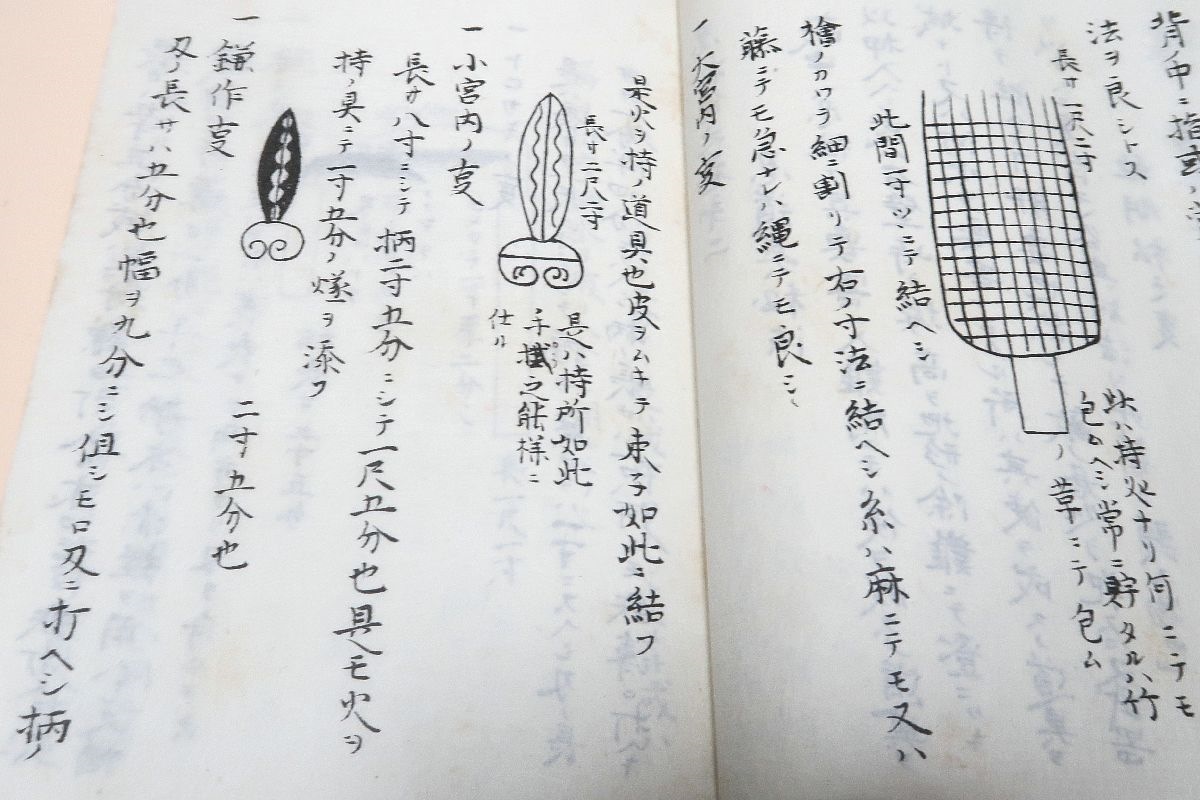 背ノ中ニ指
法ヲ良シトス
長サ一尺二寸
此ハ持火ナリ何ニテモ
包ムヘシ常ニ貯タルハ竹
ノ草ニテ包ム
此間一寸ツヽニテ結ヘシ
檜ノカワラ細ニ割リテ右ノ寸法ニ結ヘシ糸ハ麻ニテモ又ハ
藤ニテモ急ナレハ縄ニテモ良シ
一大宮内ノ事
是火ヲ持ノ道具也皮ヲムキテ束子如此ニ結フ
長サ二尺二寸
是ハ持所如此
手之能様ニ
仕ル
一小宮内ノ叓
長サ八寸ニシテ柄二寸五分ニシテ一尺五分也具モ火ヲ
持ノ具ニテ一寸五分ノ燧ヲ添フ
一鎌作叓 二寸五分也
刃ノ長サハ五分也幅ヲ九分ニシ但シモロ刃ニ打ヘシ柄ノ